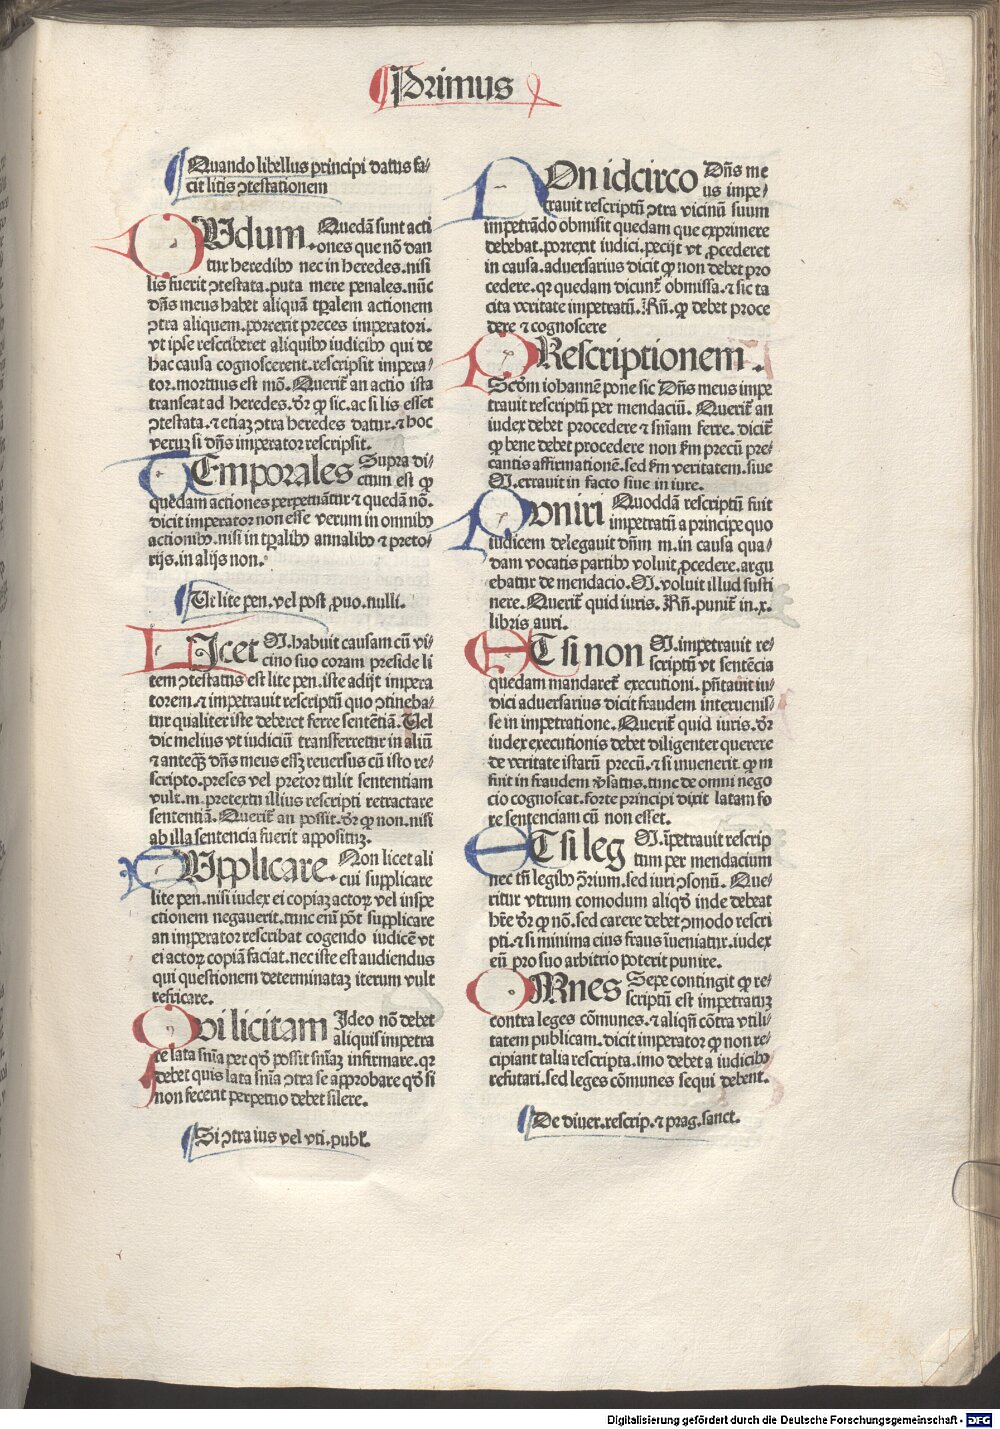 Primus
Quando libellus principi datus fa-
cit litis ɔtestationem
QUdum. Quedā sunt acti
ones que nō dan
tur heredibꝰ nec in heredes. nisi
lis fuerit ɔtestata. puta mere penales. nūc
dn̄s meus habet aliquā tꝑalem actionem
ɔtra aliquem. porrexit preces imperatori.
vt ipse rescriberet aliquibꝰ iudicibꝰ qui de
hac causa cognoscerent. rescripsit impera-
tor. mortuus est mō. Querit̄ an actio ista
transeat ad heredes. dr̄ ꝙ sic. ac si lis esset
ɔtestata. ⁊ etiaꝫ ɔtra heredes datur. ⁊ hoc
veruꝫ si dn̄s imperator rescripsit.
TEmporales Supra di-
ctum est ꝙ
quedam actiones perpetuāt̄ur ⁊ quedā nō.
dicit imperator non esse verum in omnibꝰ
actionibꝰ. nisi in tꝑalibꝰ annalibꝰ ⁊ preto-
rijs. in alijs non.
Ut lite pen. vel post ꝓuo. nulli.
LIcet M. habuit causam cū vi
cino suo coram preside li
tem ɔtestatus est lite pen. iste adijt impera
torem. ⁊ impetrauit rescriptū quo ɔtineba-
tur qualiter iste deberet ferre sentētiā. Uel
dic melius vt iudiciū transferretur in aliū
⁊ anteqꝫ dn̄s meus esꝫ reuersus cū isto re-
scripto. preses vel pretor tulit sententiam
vult. m. pretextu illius rescripti retractare
sententiā. Querit̄ an possit. dr̄ ꝙ non. nisi
ab illa sentencia fuerit apposituꝫ.
SUpplicare. Non licet ali
cui supplicare
lite pen. nisi iudex ei copiaꝫ actoꝝ vel inspe
ctionem negauerit. tunc enī pōt supplicare
an imperator rescribat cogendo iudicē vt
ei actoꝝ copiā faciat. nec iste est audiendus
qui questionem determinataꝫ iterum vult
refricare.
QVi licitam Ideo nō debet
aliquis impetra
re lata sn̄ia per qd̄ possit sn̄iaꝫ infirmare. qꝛ
debet quis lata sn̄ia ɔtra se approbare qd̄ si
non fecerit perpetuo debet silere.
Si ɔtra ius vel vti. publ̄.
NOn idcirco Dn̄s me
us impe-
trauit rescriptū ɔtra vicinū suum
impetrādo obmisit quedam que exprimere
debebat. porrexit iudici. pecijt vt ꝓcederet
in causa. aduersarius dicit ꝙ non debet pro
cedere. qꝛ quedam dicunt̄ obmissa. ⁊ sic ta
cita veritate impetratū. Rn̄. ꝙ debet proce
dere ⁊ cognoscere
PRescriptionem.
Scd̄m iohannē pone sic Dn̄s meus impe
trauit rescriptū per mendaciū. Querit̄ an
iudex debet procedere ⁊ sn̄iam ferre. dicit̄
ꝙ bene debet procedere non ẜm precū pre-
cantis affirmationē. sed ẜm veritatem. siue
M. errauit in facto siue in iure.
PVniri Quoddā rescriptū fuit
impetratū a principe quo
iudicem delegauit dn̄m m. in causa qua-
dam vocatis partibꝰ voluit ꝓcedere. argu
ebatur de mendacio. M. voluit illud susti
nere. Querit̄ quid iuris. Rn̄. punit̄ in. x.
libris auri.
ETsi non M. impetrauit re-
scriptū vt sentēcia
quedam mandaret̄ executioni. pn̄tauit iu-
dici aduersarius dicit fraudem interuenis-
se in impetratione. Querit̄ quid iuris. dr̄
iudex executionis debet diligenter querere
de veritate istarū precū. ⁊ si inuenerit ꝙ m
fuit in fraudem ꝟsatus. tunc de omni nego
cio cognoscat. forte principi dixit latam fo
re sentenciam cū non esset.
ETsi leg M. īpetrauit rescrip
tum per mendacium
nec tn̄ legibꝰ ꝯ̄rium. sed iuri ɔsonū. Que-
ritur vtrum comodum aliqd̄ inde debeat
hr̄e dr̄ ꝙ nō. sed carere debet ɔmodo rescri
pti. ⁊ si minima eius fraus īueniatur. iudex
eū pro suo arbitrio poterit punire.
OMnes Sepe contingit ꝙ re-
scriptū est impetratuꝫ
contra leges cōmunes. ⁊ aliqn̄ cōtra vtili-
tatem publicam. dicit imperator ꝙ non re-
cipiant talia rescripta. imo debet a iudicibꝰ
refutari. sed leges cōmunes sequi debent.
De diuer. rescrip. ⁊ prag. sanct.
Digitalisierung gefördert durch die Deutsche Forschungsgemeinschaft - DFG